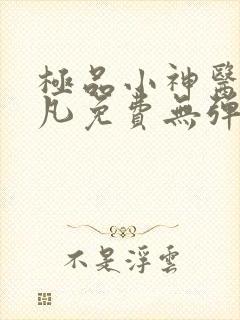 極品小神醫
凡免費無彈
不是浮雲